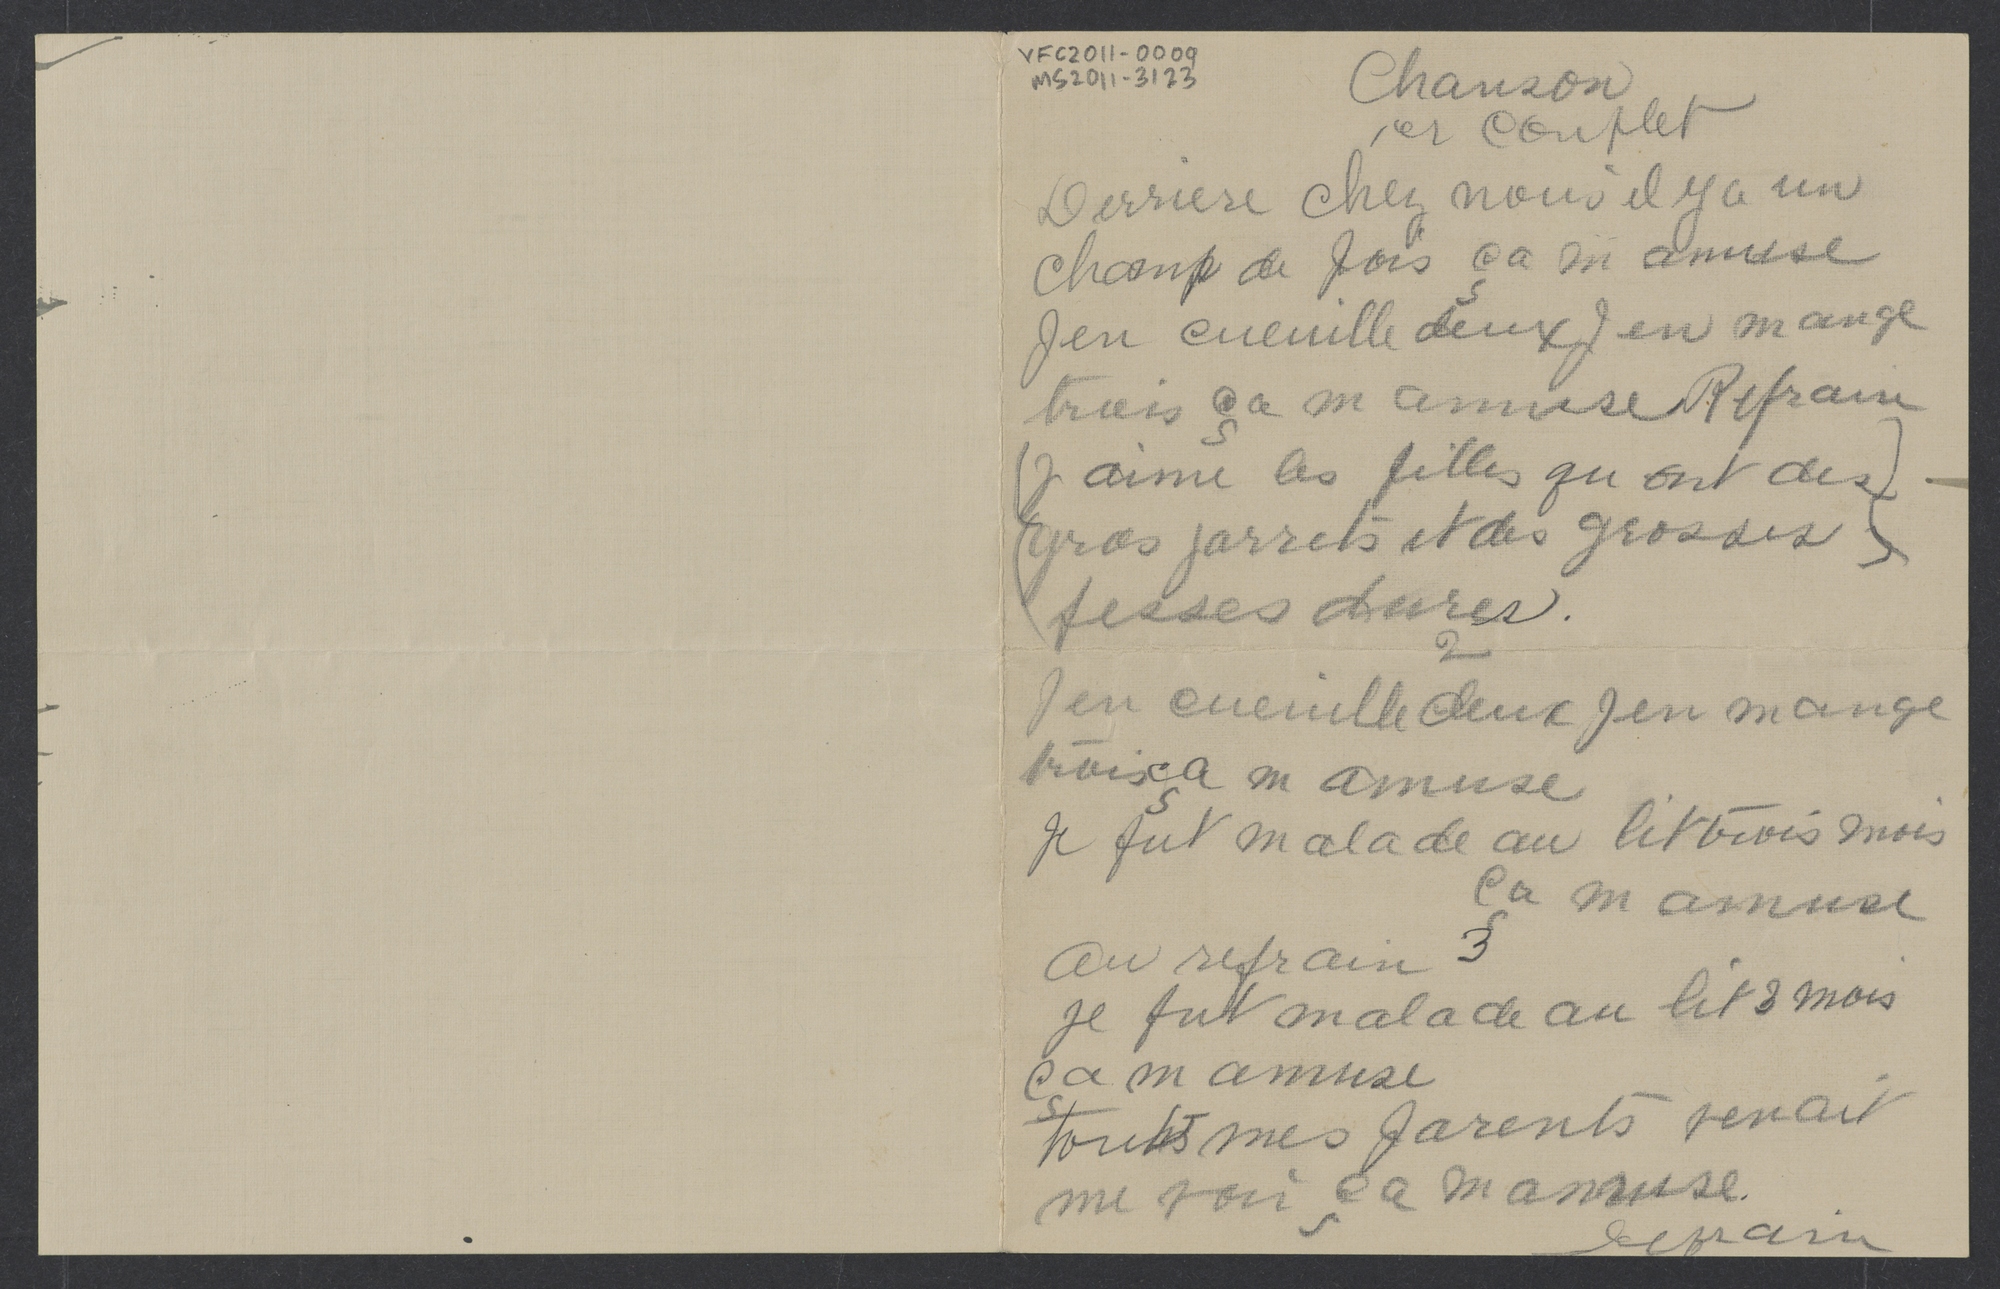 VFC2011-0009
MS2011-3123
Chanson
1er Couplet
Derriere chez nous il y a un
champ de pois ça m amuse
J en cueuille deux J en mange
trois ça m amuse Refrain
(J aime les filles qu ont des)
(gros jarrets et des grosses)
(fesses dures.
2
J en cueuille deux J en mange
trois ça m amuse
Je fut malade au lit trois mois
Ça m amuse
au refrain 3
Je fut malade au lit 3 mois
Ça m amuse
touts mes parents venait
me voir ça m amuse.
Refrain